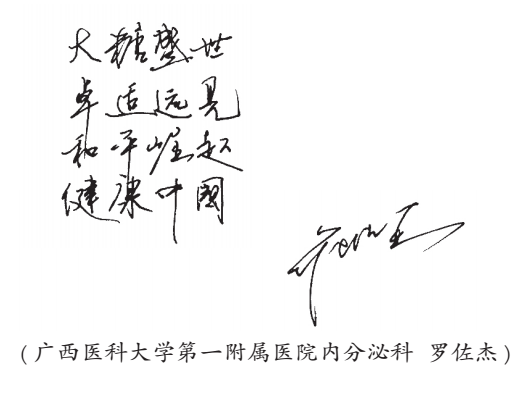 大糖盛世
卓适远見
和平崛起
健康中國
(广西医科大学第一附属医院内分泌科 罗佐杰)